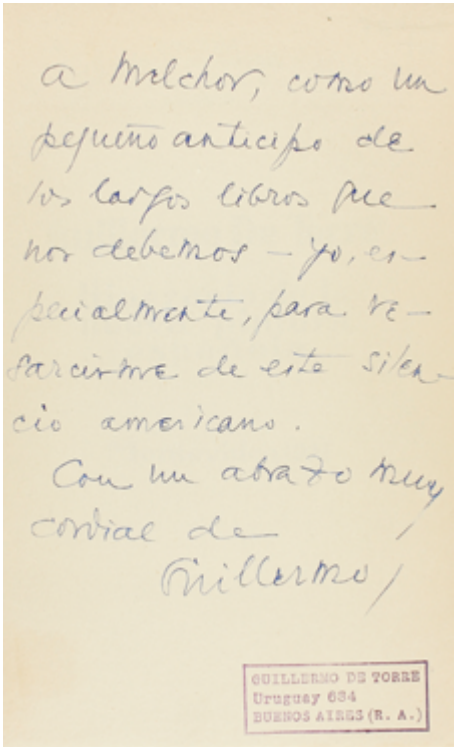 a Melchor, como un
pequeño anticipo de
los largos libros que
nos debemos – yo, es–
pecialmente, para re–
sarcirme de este silen–
cio americano.
Con un abrazo muy
cordial de
Guillermo
GUILLERMO DE TORRE
Uruguay 634
BUENOS AIRES (R. A.)